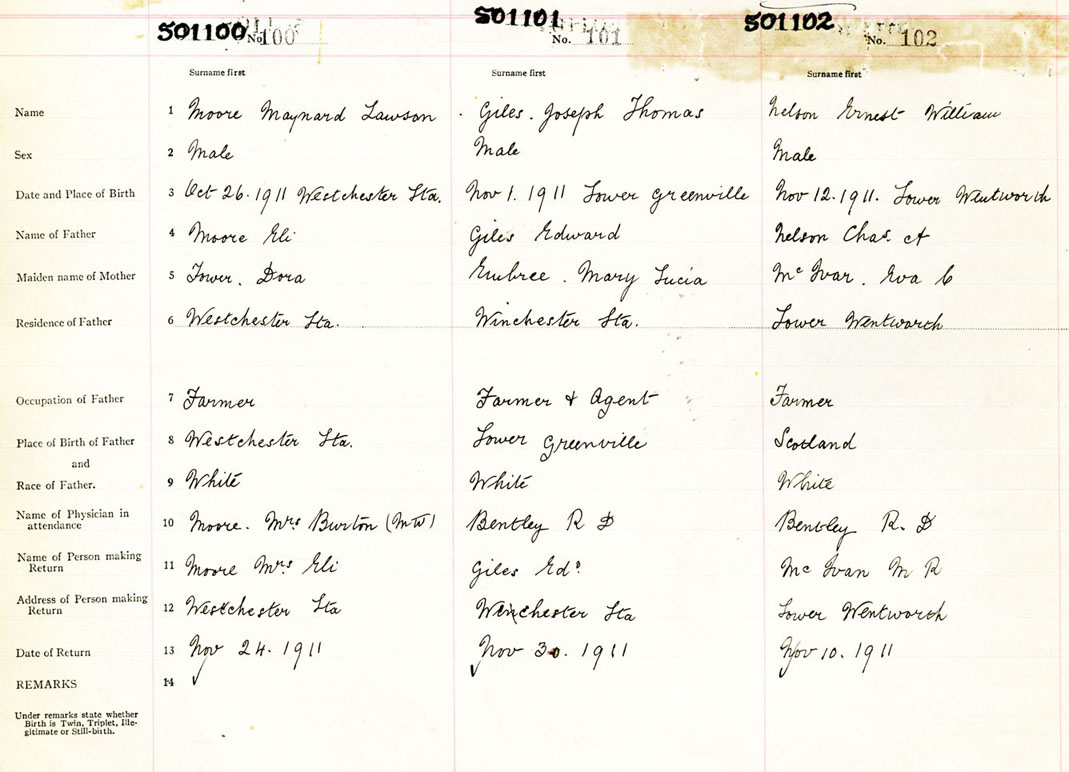 501100 501101 501102
No. 100 No. 101 No. 102
Surname first Surname first Surname first
Name 1 Moore Maynard Lawson Giles. Joseph Thomas Nelson Ernest William
Sex 2 Male Male Male
Date and Place of Birth 3 Oct 26. 1911 Westchester Sta. Nov 1. 1911 Lower Greenville Nov 12. 1911. Lower Wentworth
Name of Father 4 Moore Eli Giles Edward Nelson Chas. A
Maiden name of Mother 5 Tower. Dora Embree. Mary Lucia Mc Ivar. Eva C
Residence of Father 6 Westchester Sta. Winchester Sta. Lower Wentworth
Occupation of Father 7 Farmer Farmer & Agent Farmer
Place of Birth of Father 8 Westchester Sta. Lower Greenville Scotland
and
Race of Father. 9 White White White
Name of Physician in
attendance 10 Moore. Mrs Burton (MW) Bentley R D Bentley R. D
Name of Person making
Return 11 Moore Mrs Eli Giles Edd Mc Ivan M R
Address of Person making
Return 12 Westchester Sta Winchester Sta Lower Wentworth
Date of Return 13 Nov 24. 1911 Nov 30. 1911 Nov 10. 1911
REMARKS 14
Under remarks state whether
Birth is Twin, Triplet, Ille-
gitimate or Still-birth.